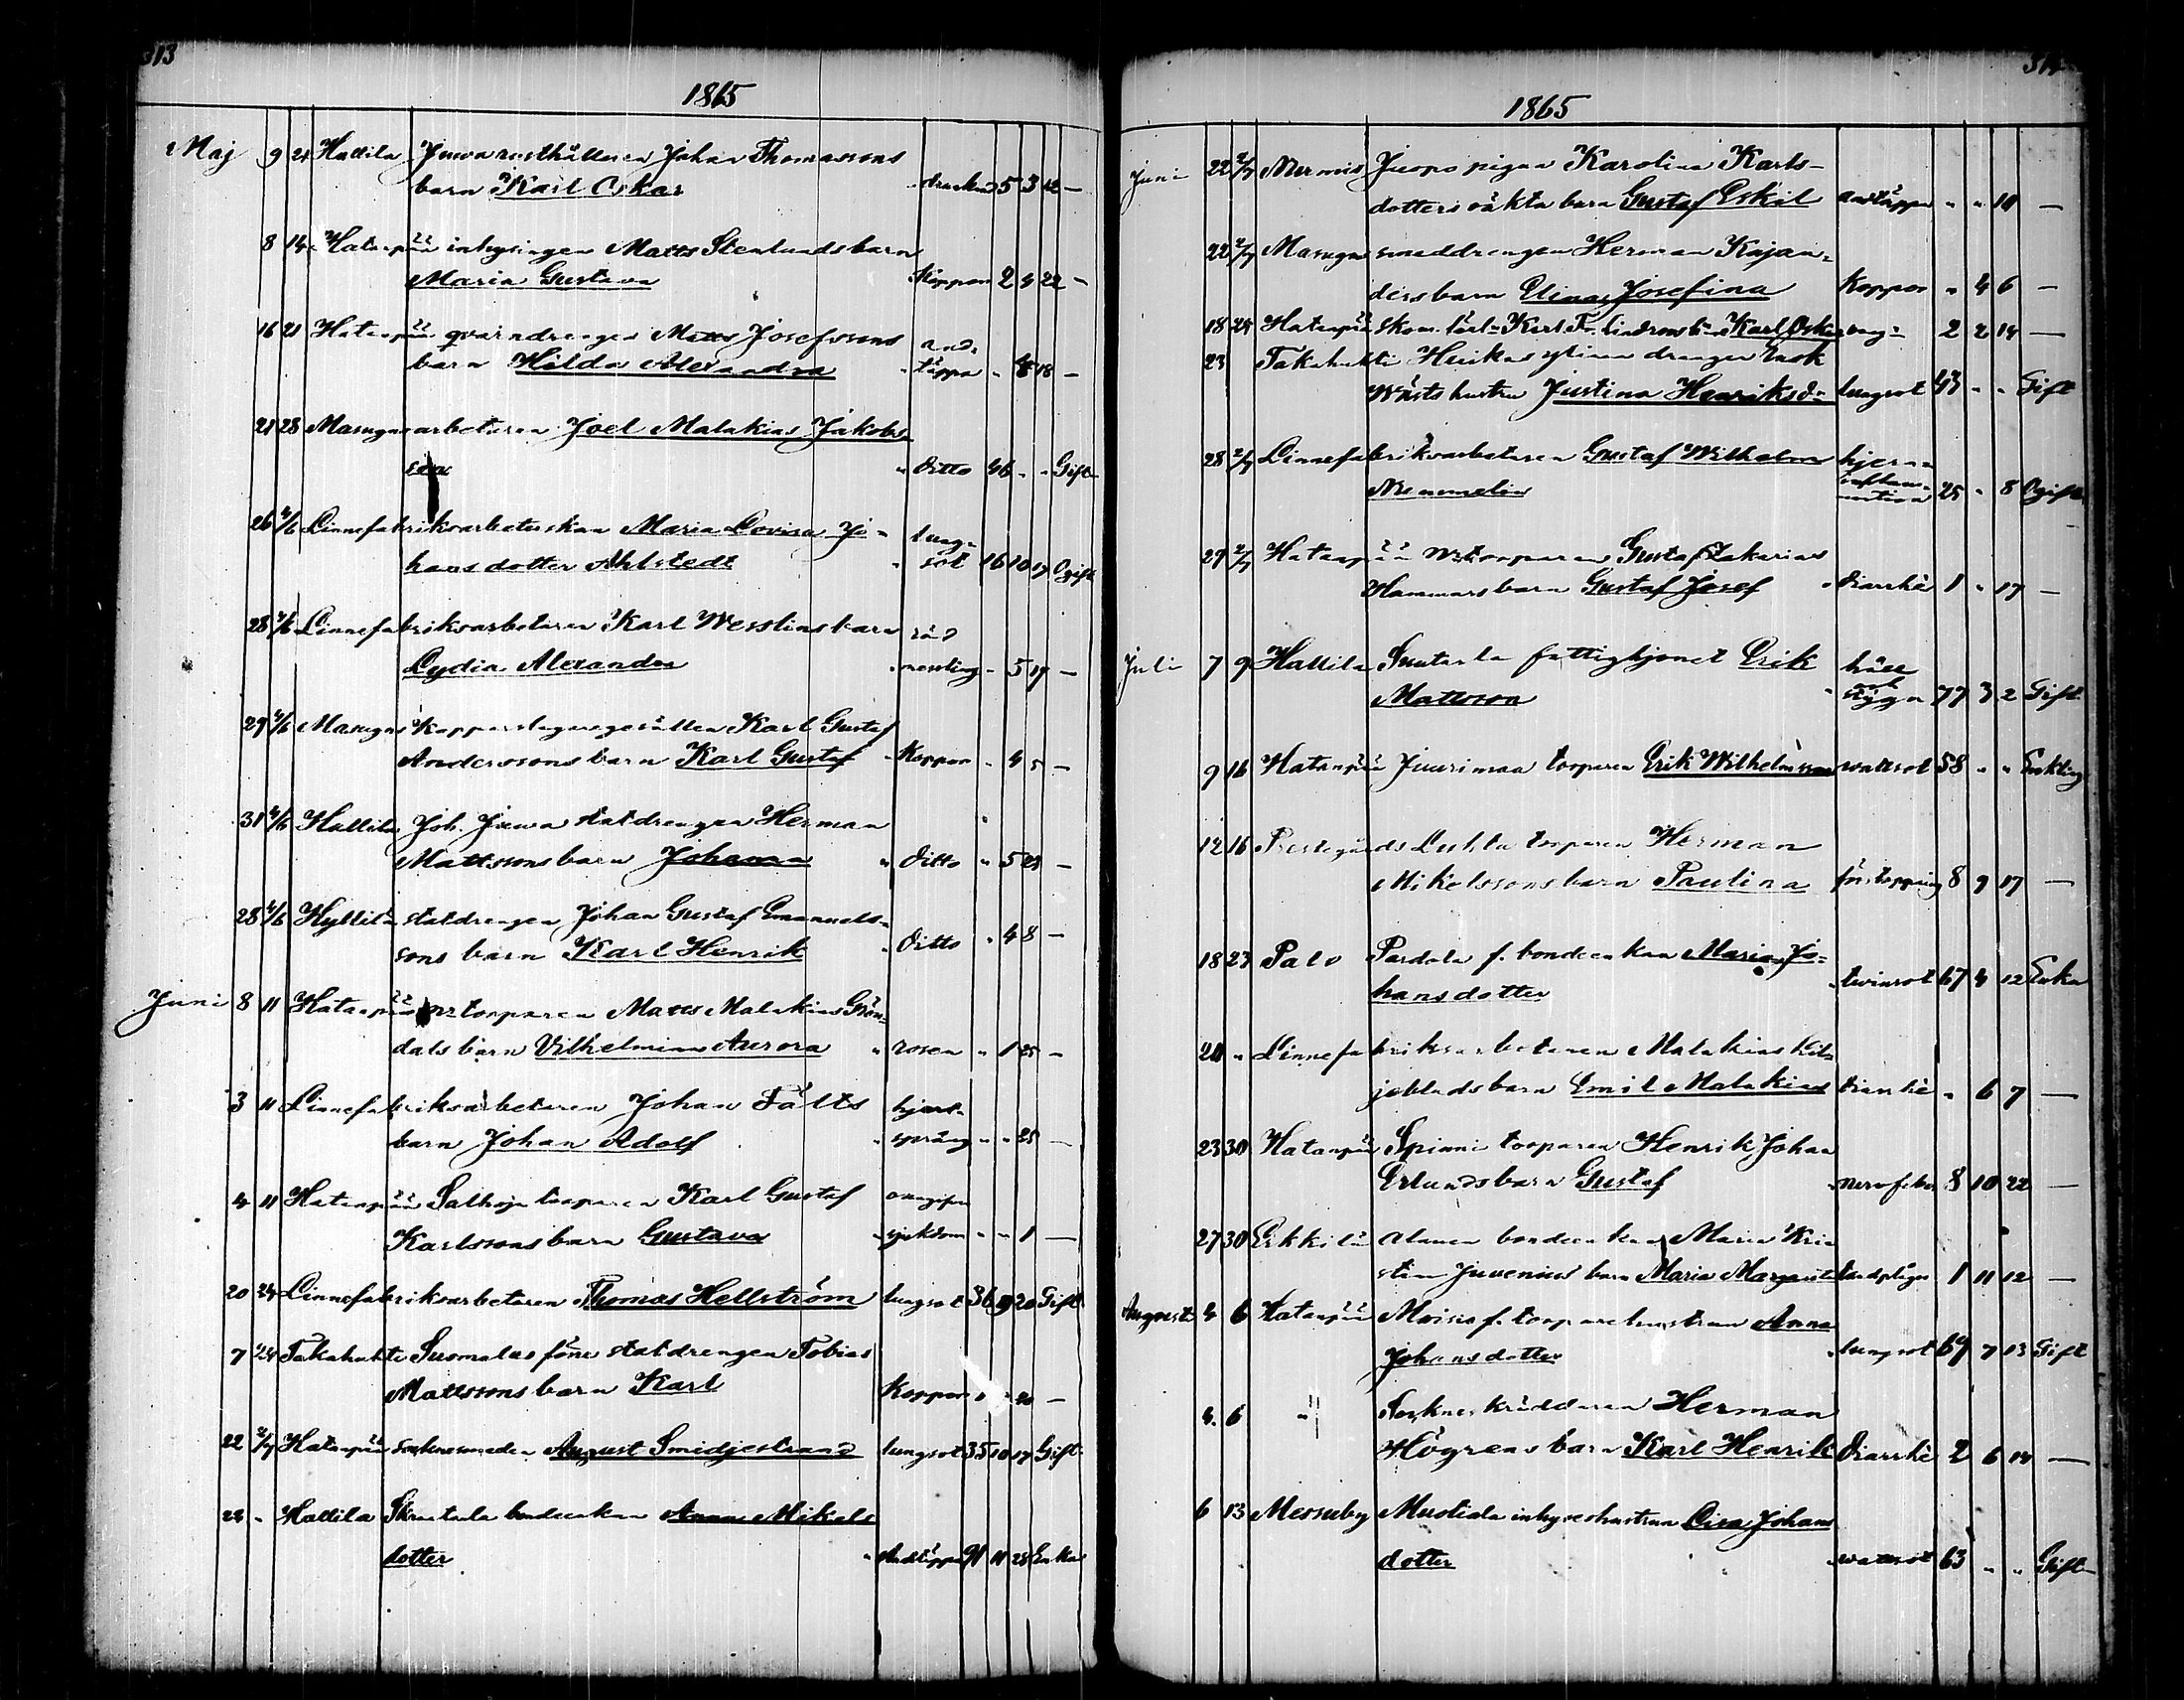 313
1865
Maj 9 21 Hallila Juvoa rusthållaren Johan Thomassons
barn Karl Oskar drunknad 5 3 12 —
8 14 Hatanpää inhysingen Matts Stenlunds barn
Maria Gustava Koppor 2 4 22 —
16 21 Hatanpää qvarndrengen Matts Josefssons and-
barn Hilda Alexandra täppa " 8 18 —
21 28 Masugns arbetaren Joel Malakias Jakobs-
son " Ditto 46 " " Gift
26 4/6 Linnefabriksarbeterskan Maria Lovisa Jo- lung-
hansdotter Ahlstedt sot 16 10 17 Ogift
28 4/6 Linnefabriksarbetaren Karl Wesslins barn röd
Lydia Alexandra messling " 5 17 —
29 4/6 Masugns Kopparslagaregesällen Karl Gustaf
Anderssons barn Karl Gustaf Koppor " 4 5 —
31 4/6 Hallila Joh. Juvoa statdrengen Herman
Mattssons barn Johanna " Ditto " 5 23 —
28 4/6 Hyllilä statdrengen Johan Gustaf Emanuels-
sons barn Karl Henrik " Ditto " 4 8 —
Juni 8 11 Hatanpää torparen Matts Malakias Grön-
dals barn Vilhelmina Aurora " rosen " 1 25 —
3 11 Linnefabriksarbetaren Johan Fälts hjert-
barn Johan Adolf " språng " " 25 —
4 11 Hatanpää Salhoja torparen Karl Gustaf oangifven
Karlssons barn Gustava " sjukdom " " 1 —
20 24 Linnefabriksarbetaren Thomas Hellström lungsot 36 9 20 Gift
7 24 Takahuhti Suomalas före statdrengen Tobias
Mattssons barn Karl Koppor " " 20 —
22 2/7 Hatanpää socknesmeden August Smidjestrand lungsot 35 10 17 Gift
22 " Hallila bondeenkan Anna Mikels
dotter " Andtäppa 91 11 28 Enka
314
1865
Juni 22 2/7 Nurmis Juopo pigan Karolina Karls-
dotters oäkta barn Gustaf Eskil andtäppa " " 11 —
22 2/7 Masugns smeddrengen Herman Kajan-
ders barn Elina Josefina Koppor " 4 6 —
18 24 Hatanpää Karl Fr. bn Karl Oskar 2 2 14 —
23 Takahuhti Heikas drengen Enok
hustru Justina Henriksdr lungsot 43 " " Gift
28 2/7 Linnefabriksarbetaren Gustaf Wilhelm hjern-
Nummelin inflammation 25 " 8 Ogift
29 2/7 Hatanpää torparen Gustaf Zakarias
Hammars barn Gustaf Josef " diarrhé 1 " 17 —
Juli 7 9 Hallila fattighjonet Erik håll
och
Mattsson " stygn 77 3 2 Gift
9 16 Hatanpää Juurimaa torparen Erik Wilhelmsson wattusot 58 " " Enkling
12 16 Prestegårds Luhta torparen Herman
Mikelssons barn Paulina förstoppning 8 9 17 —
18 23 Palo Pardala f. bondeenkan Maria Jo-
hansdotter tvinsot 67 4 12 Enka
20 " Linnefabriksarbetaren Malakias Lil-
jeblads barn Emil Malakias diarrhé " 6 7 —
23 30 Hatanpää Spinni torparen Henrik Johan
Erlunds barn Gustaf nervfeber 8 10 22 —
27 30 Erkkilä Alanen bondeenkan Maria Kri-
stin Juvenius barn Maria Margareta tandplågor 1 11 12 —
Augusti 4 6 Hatanpää Moisio f. torparehustrun Anna
Johansdotter " lungsot 69 7 13 Gift
4 6 " Sockneskräddaren Herman
Högrens barn Karl Henrik Diarrhé 2 6 14 —
6 13 Messuby Mustiala inhyseshustrun Lisa Johans
dotter " wattusot 63 " " Gift